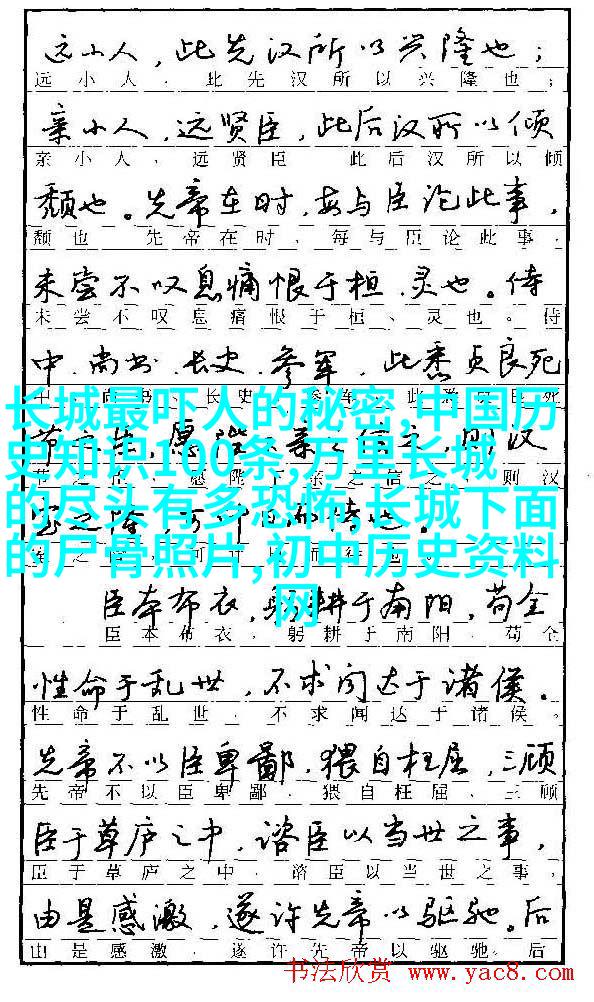 远小人，此先汉所以兴隆也；
远小人，此先汉所以兴隆也；
亲小人，远贤臣，此后汉所以倾
亲小人，远贤臣 此后汉所以倾
颓也。先帝在时，每与臣论此事，
颓也 先帝在时，每与臣论此事，
未尝不叹息痛恨于桓、灵也。侍
未尝不叹息痛恨于桓、灵也。侍
中、尚书、长史、参军，此悉贞良死
长城最吓人的秘密,中国历
史知识100条,万里长城
的尽头有多恐怖,长城下面
的尸骨照片,初中历史资料
网
臣本布衣，躬耕于南阳，苟全
臣本布衣，躬耕于南阳，苟全
性命于乱世，不求闻达于诸侯。
性命于乱世，不求闻达于诸侯。
先帝不以臣卑鄙，猥自枉屈，三顾
先帝不以臣卑鄙，猥自枉屈，三顾
臣于草庐之中，谘臣以当世之事，
臣于草庐之中，谘臣以当世之事，
由是感激，遂许先帝以驱驰。后
由是感激，遂许先帝以驱驰。后
书法欣赏 www.yac8.com